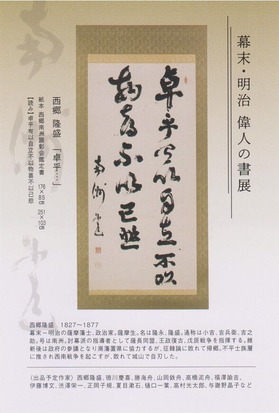 幕末・明治 偉人の書展
卓乎有以自立不以
物喜不以己悲
南洲
西郷 隆盛 「卓乎…」
紙本 西郷南洲顕彰会鑑定書
176×85㎝ 251×103㎝
【読み】卓乎有以自立不以物喜不以己悲
西郷隆盛 1827~1877
幕末-明治の薩摩藩士、政治家。薩摩生。名は隆永、隆盛。通称は小吉、吉兵衛、吉之
助。号は南洲。討幕派の指導者として薩長同盟、王政復古、戊辰戦争を指揮する。維
新後は政府の参議となり廃藩置県に協力するが、征韓論に敗れて帰郷。不平士族層
に推され西南戦争を起こすが、敗れて城山で自刃した。
(出品予定作家) 西郷隆盛、徳川慶喜、勝海舟、山岡鉄舟、高橋泥舟、福澤諭吉、
伊藤博文、渋澤栄一、正岡子規、夏目漱石、樋口一葉、高村光太郎、与謝野晶子など